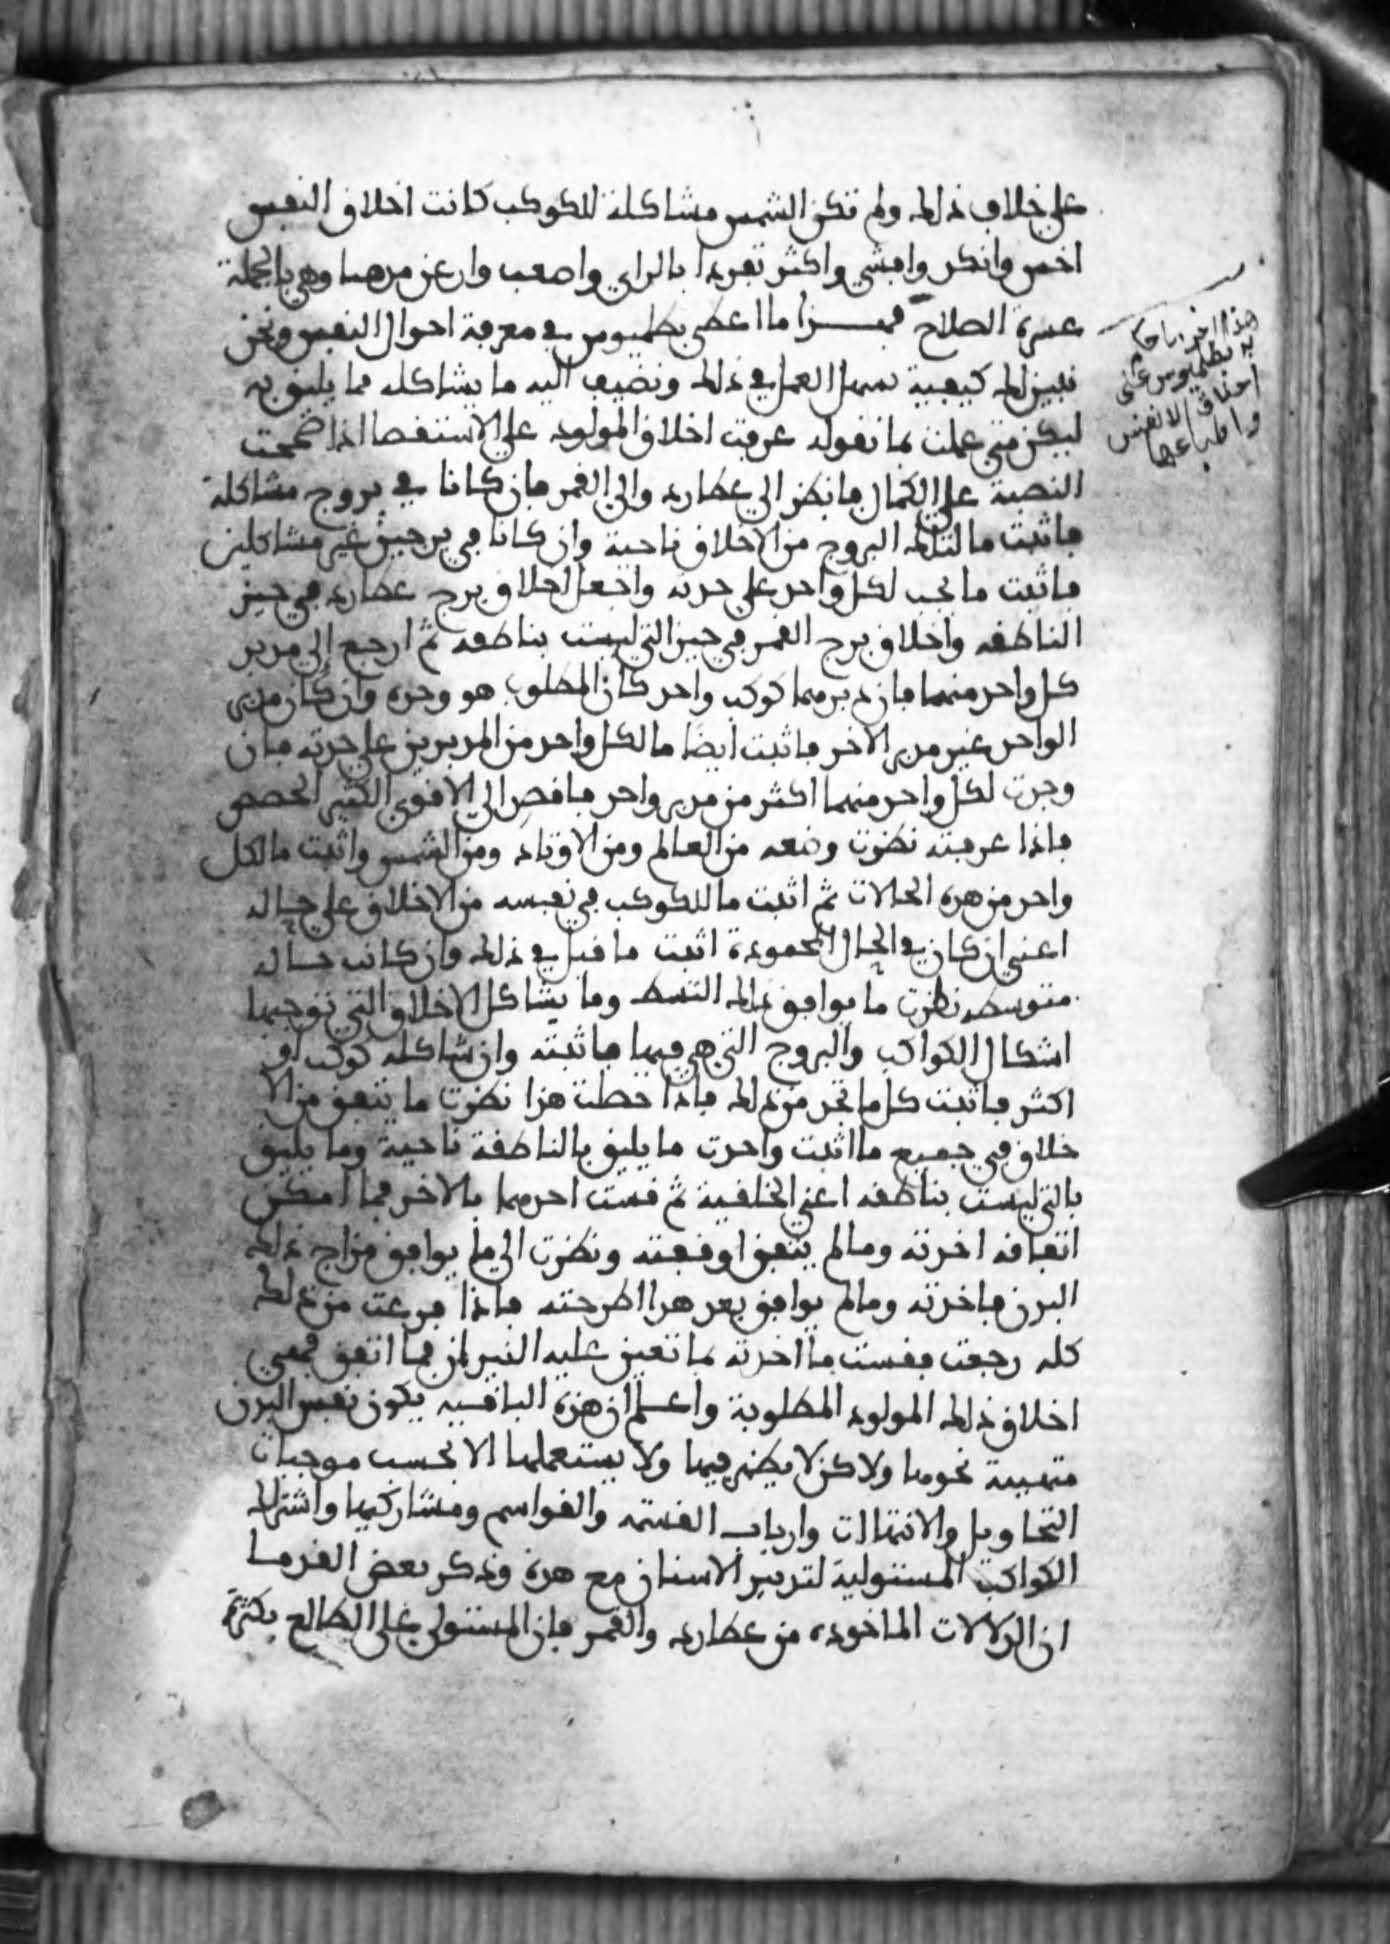 على خلاف ذلك ولم تكن الشمس مشاكلة للكوكب كانت اخلاق النفس
اخس وانكر وافشى واكثر تفردا بالراي واصعب وارعن مذهبا وهي بالجملة
عسرة الصلاح فهـذا ما اعطى بطلميوس في معرفة احوال النفس ونحن
نبين لك كيفية تسهل العمل في ذلك ونضيف اليه ما يشاكله مما يليق به
ليكن متى عملت بما نقوله عرفت اخلاق المولود على الاستقصا اذا صححت
النصبة على الكمال فانظر الى عطارد والى القمر فان كانا في بروج مشاكلة
فاثبت ما لتلك البروج من الاخلاق ناحية وان كانا في برجين غير مشاكلين
فاثبت ما يجب لكل واحد على حدته واجعل اخلاق برج عطارد في حيز
الناطقه واخلاق برج القمر في حيز التي ليست بناطقه ثم ارجع الى مدبر
كل واحد منهما فان دبرهما كوكب واحد كان المطلوب هو وحده وان كان مدبر
الواحد غير مدبر الاخر فاثبت ايضا ما لكل واحد من المدبرين على حدته فان
وجدت لكل واحد منهما اكثر من مدبر واحد فاقصد الى الاقوى الكثير الحصص
فاذا عرفته نظرت وضعه من العالم ومن الاوتاد ومن الشمس واثبت ما لكل
واحد من هذه الحالات ثم اثبت ما للكوكب في نفسه من الاخلاق على حياله
اعني ان كان في الحال المحمودة اثبت ما قيل في ذلك وان كانت حاله
متوسطه نظرت ما يوافق ذلك التسط وما يشاكل الاخلاق التي توجبها
اشكال الكواكب والبروج التي هي فيها فاثبته وان شاكله كوكب او
اكثر فاثبت كل ما تجد من ذلك فاذا حصلت هذا نظرت ما يتفق من الا
خلاق في جميع ما اثبت واخذت ما يليق بالناطقة ناحية وما يليق
بالتي ليست بناطقه اعني الخلقية ثم قست احدهما بالاخر فما امكن
اتفاقه اخذته وما لم يتفق اوقفته ونظرت الى ما يوافق مزاج ذلك
البدن فاخذته وما لم يوافق بعد هذا اطرحته فاذا فرغت من ذلك
كله رجعت فقست ما اخذته بما تعين عليه النيران فما اتفق فهي
اخلاق ذلك المولود المطلوبة واعـلم ان هذه الباقيه يكون نفس البدن
متهيية نحوها ولاكن لا يظهر فيها ولا يستعملها الا بحسب موجبات
التحاويل والانتهاات وارباب القسمه والقواسم ومشاركيها واشتراك
الكواكب المستولية لتدبير الاسنان مع هذه وذكر بعض القدما
ان الدلالات الماخوذه من عطارد والقمر فان المستولي على الطالع يكثرة
هذا اخر ما حكا
به بطلميوس على
اخلاق الانفس
واطباعها